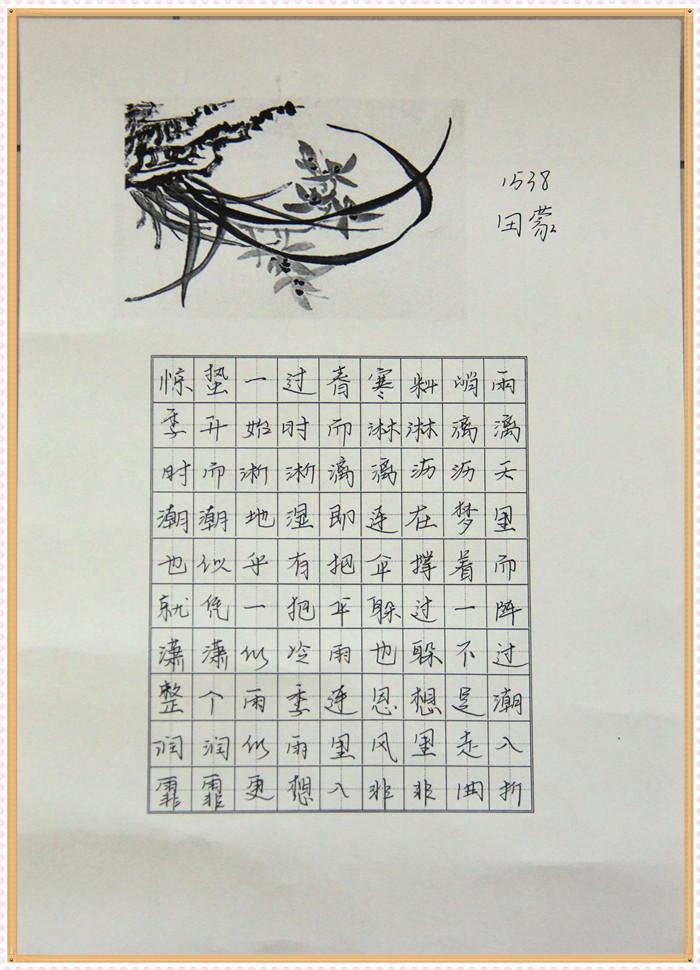 1538
田蒙
惊蛰一过春寒料峭雨
季开始时而淋淋漓漓
时而淅淅漓漓沥沥天
潮潮地湿即连在梦里
也似乎有把伞撑着而
就凭一把伞躲过一阵
潇潇似冷雨也躲不过
整个雨季连思想是潮
润润似雨里风里走入
霏霏更想入非非曲折